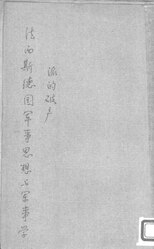 法西斯德国军事思想与军事学
派的破产